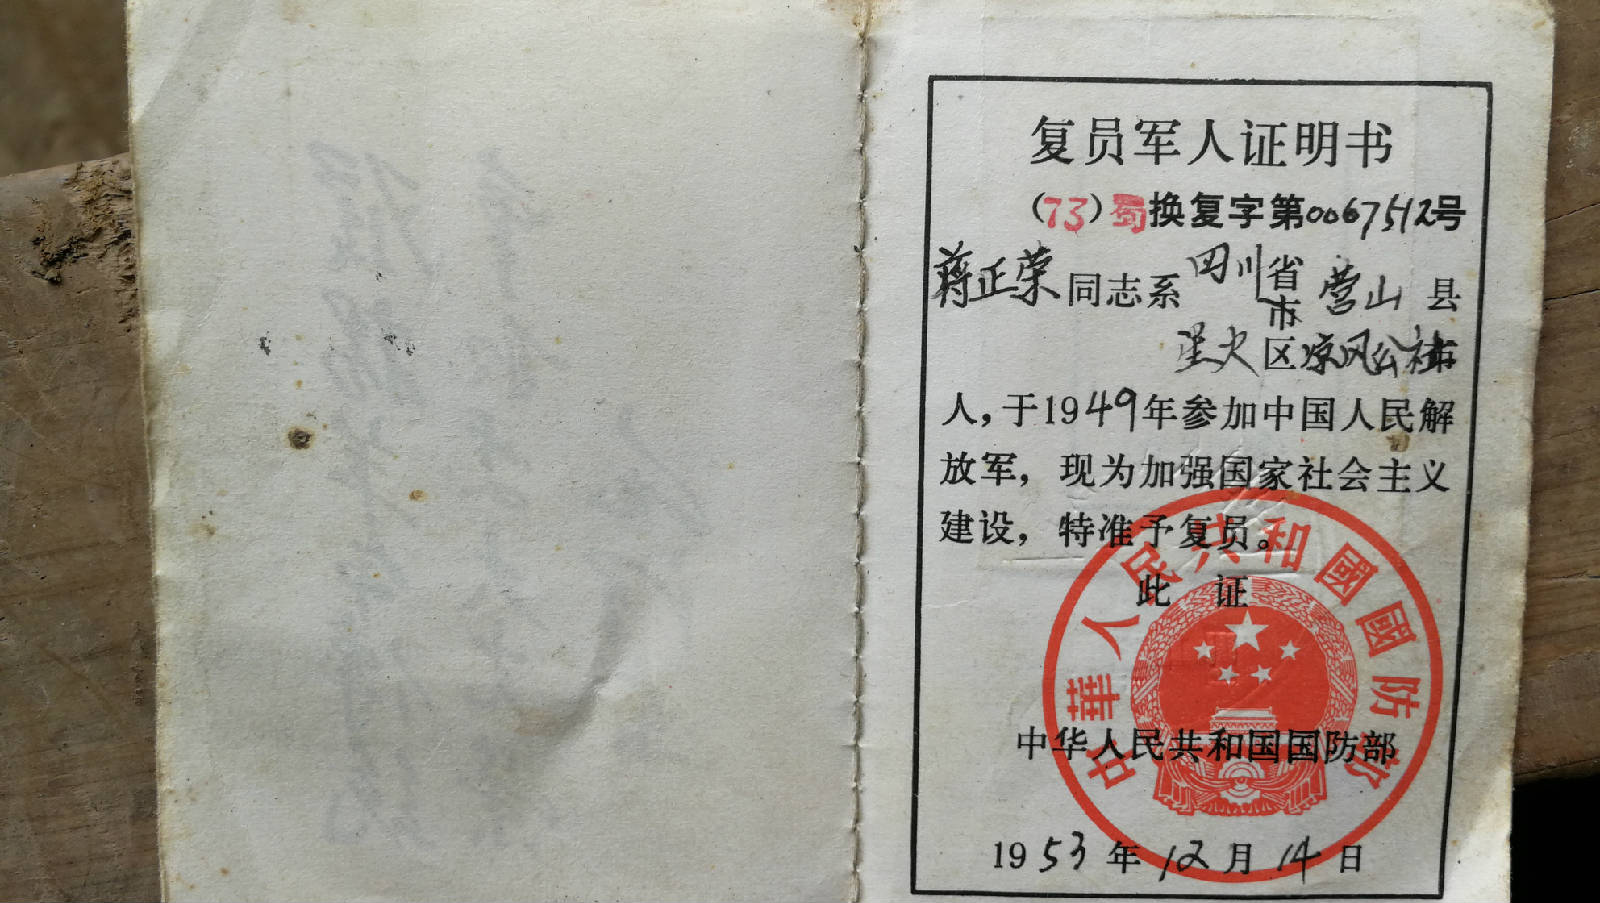 复员军人证明书
（73）蜀换复字第0067512号
蒋正荣同志系四川省市营山县
星火区凉风公社
人，于1949年参加中国人民解
放军，现为加强国家社会主义
建设，特准予复员。
此 证
中華人民共和國國防部
中华人民共和国国防部
1953年12月14日